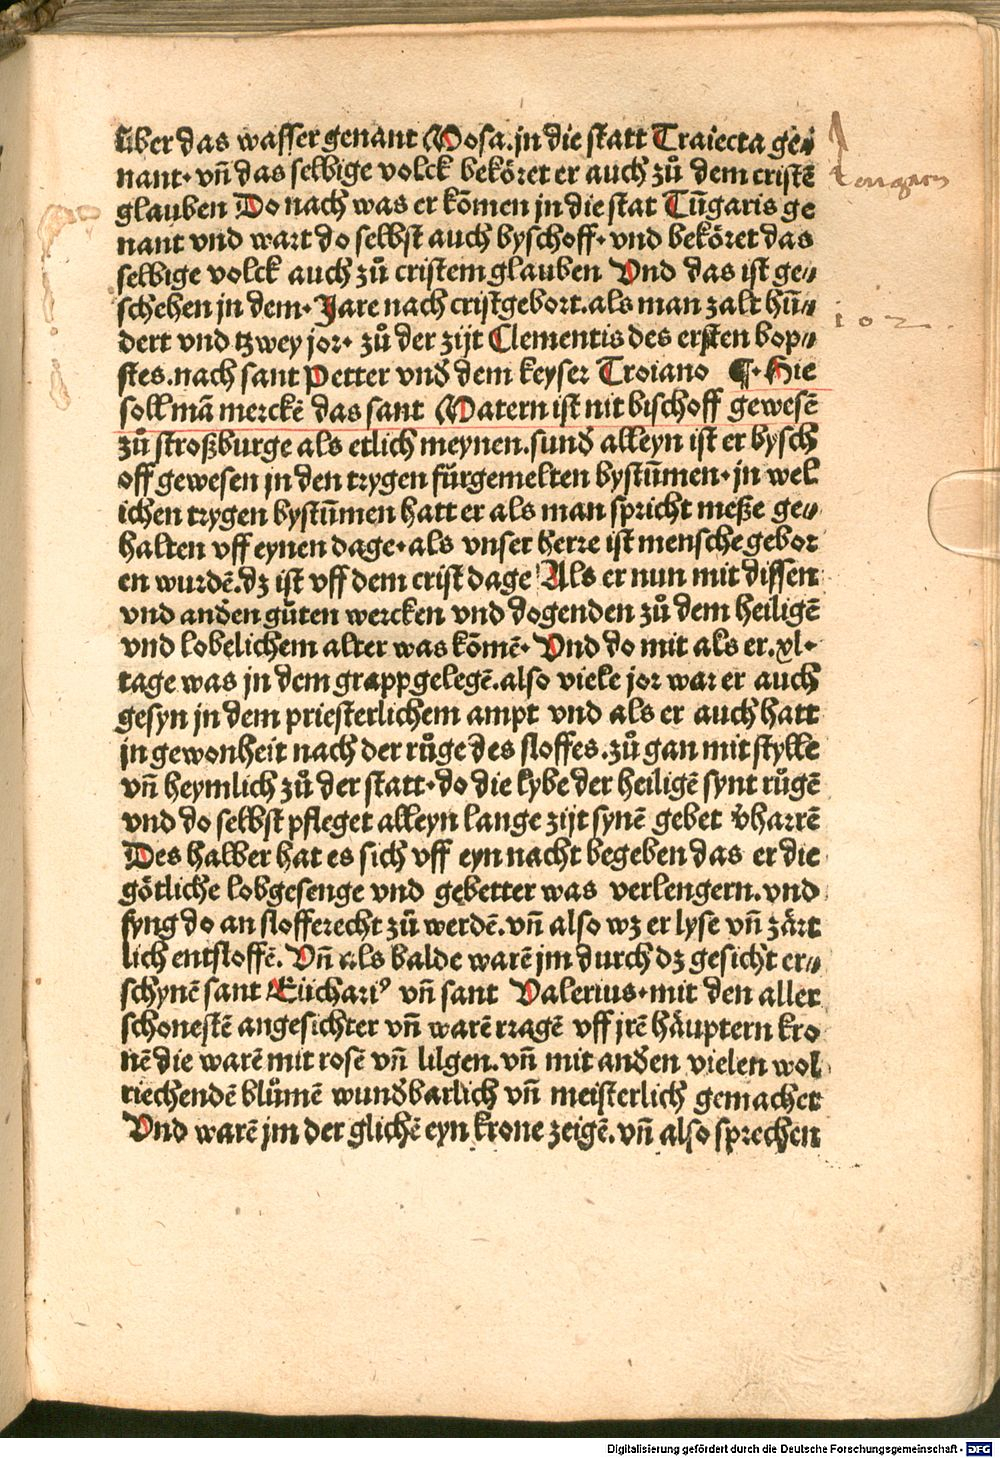 über das wasser genant Mosa.jn die statt Traiecta ge⸗
nant. vñ das selbige volck beköret er auch zů dem cristē
glauben Do nach was er kōmen jn die stat Tūgaris ge
nant vnd wart do selbst auch byschoff. vnd beköret das
selbige volck auch zů cristem glauben Vnd das ist ge⸗
schehen jn dem. Jare nach cristgebort.als man zalt hū⸗
dert vnd tzwey jor. zů der zijt Clementis des ersten bop⸗
stes.nach sant Petter vnd̄ dem keyser Troiano ¶. Hie
soll mā merckē das sant Matern ist nit bischoff gewesē
zů stroßburge als etlich meynen.sund̄ alleyn ist er bysch
off gewesen jn den trygen fürgemelten bystūmen. jn wel
ichen trygen bystūmen hatt er als man spricht meße ge⸗
halten vff eynen dage. als vnser herre ist mensche gebor
en wurdē.dz ist vff dem crist dage Als er nun mit dissen
vnd and̄en gůten wercken vnd dogenden zů dem heiligē
vnd lobelichem alter was kōmē. Vnd do mit als er.xl.
tage was jn dem grapp gelegē.also viele jor war er auch
gesyn jn dem priesterlichem ampt vnd als er auch hatt
jn gewonheit nach der růge des sloffes.zů gan mit stylle
vñ heymlich zů der statt. do die lybe der heiligē synt růgē
vnd do selbst pfleget alleyn lange zijt synē gebet v̄harrē
Des halber hat es sich vff eyn nacht begeben das er die
götliche lobgesenge vnd gebetter was verlengern.vnd
fyng do an slofferecht zů werdē.vñ also wz er lyse vñ zärt
lich entsloffē. Vñ als balde warē jm durch dz gesicht er⸗
schynē sant Eüchariꝰ vñ sant Valerius. mit den aller
schonestē angesichter vñ warē tragē vff jrē häuptern kro
nē die warē mit rosē vñ lilgen.vñ mit and̄en vielen wol
riechendē blůmē wund̄barlich vñ meisterlich gemachet
Vnd warē jm der glichē eyn krone zeigē.vñ also sprechen
tengaris
102
Digitalisierung gefördert durch die Deutsche Forschungsgemeinschaft - DFG